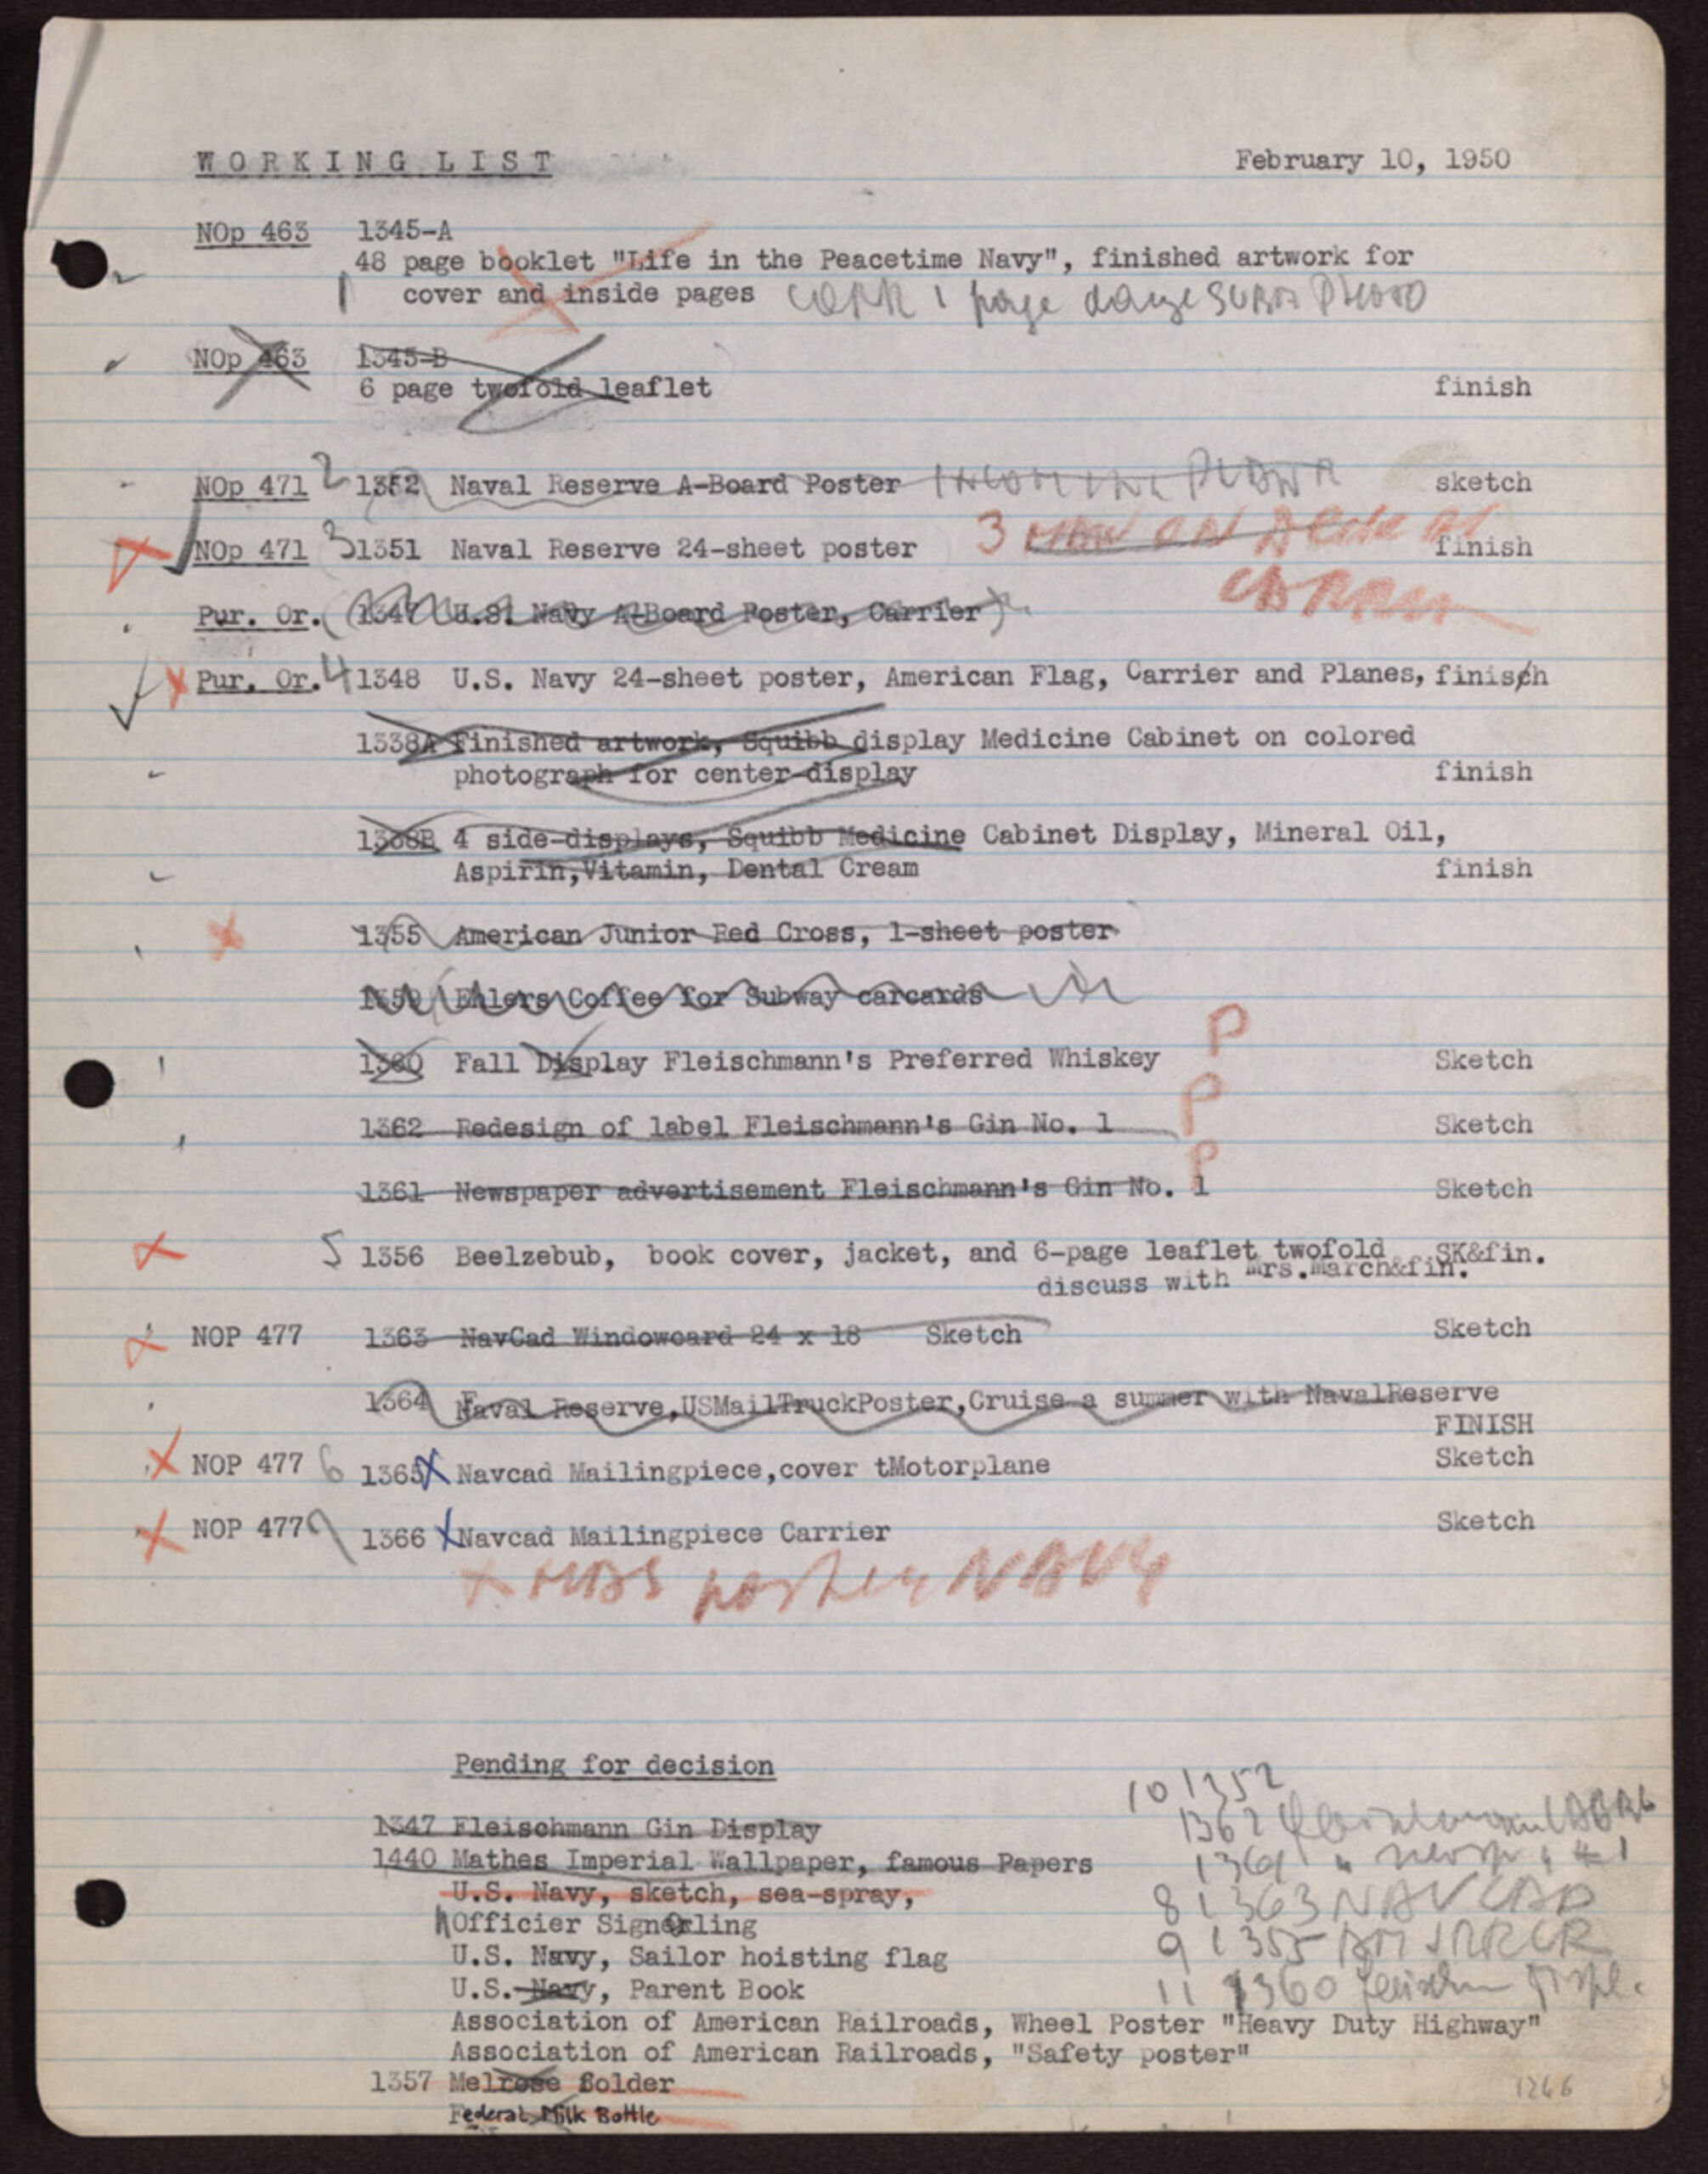 WORKING LIST February 10, 1950
NOp 463 1345-A
48 page booklet "Life in the Peacetime Navy", finished artwork for
1 cover and inside pages 1 page SUBM PHOTO
NOp 463 1345-B
6 page twofold leaflet finish
NOp 471 2 1352 Naval Reserve A-Board Poster sketch
NOp 471 3 1351 Naval Reserve 24-sheet poster 3 finish
Pur. Or. 1347 U.S. Navy A-Board Poster, Carrier
Pur. Or. 4 1348 U.S. Navy 24-sheet poster, American Flag, Carrier and Planes, finish
1338A Finished artwork, Squibb display Medicine Cabinet on colored
photograph for center-display finish
1338B 4 side-displays, Squibb Medicine Cabinet Display, Mineral Oil,
Aspirin,Vitamin, Dental Cream finish
1355 American Junior Red Cross, 1-sheet poster
1359 Ehlers Coffee for Subway carcards
1360 Fall Display Fleischmann's Preferred Whiskey P Sketch
1362 Redesign of label Fleischmann's Gin No. 1 P Sketch
1361 Newspaper advertisement Fleischmann's Gin No. 1 P Sketch
5 1356 Beelzebub, book cover, jacket, and 6-page leaflet twofold SK&fin.
discuss with Mrs.March&fin.
NOP 477 1363 NavCad Windowcard 24 x 18 Sketch Sketch
1364 Naval Reserve,USMailTruckPoster,Cruise a summer with NavalReserve
FINISH
NOP 477 6 1365 X Navcad Mailingpiece,cover tMotorplane Sketch
NOP 477 1366 X Navcad Mailingpiece Carrier Sketch
XMAS poster NAVY
Pending for decision
10 1352
1347 Fleischmann Gin Display 1362 LABEL
1440 Mathes Imperial Wallpaper, famous Papers 1361 " newsp " #1
U.S. Navy, sketch, sea-spray, 8 1363 NAVCAD
Officier Signaling 9 1355 AM JRRCR
U.S. Navy, Sailor hoisting flag
U.S. Navy, Parent Book 11 1360
Association of American Railroads, Wheel Poster "Heavy Duty Highway"
Association of American Railroads, "Safety poster"
1357 Melrose folder 1266
Federal Milk Bottle